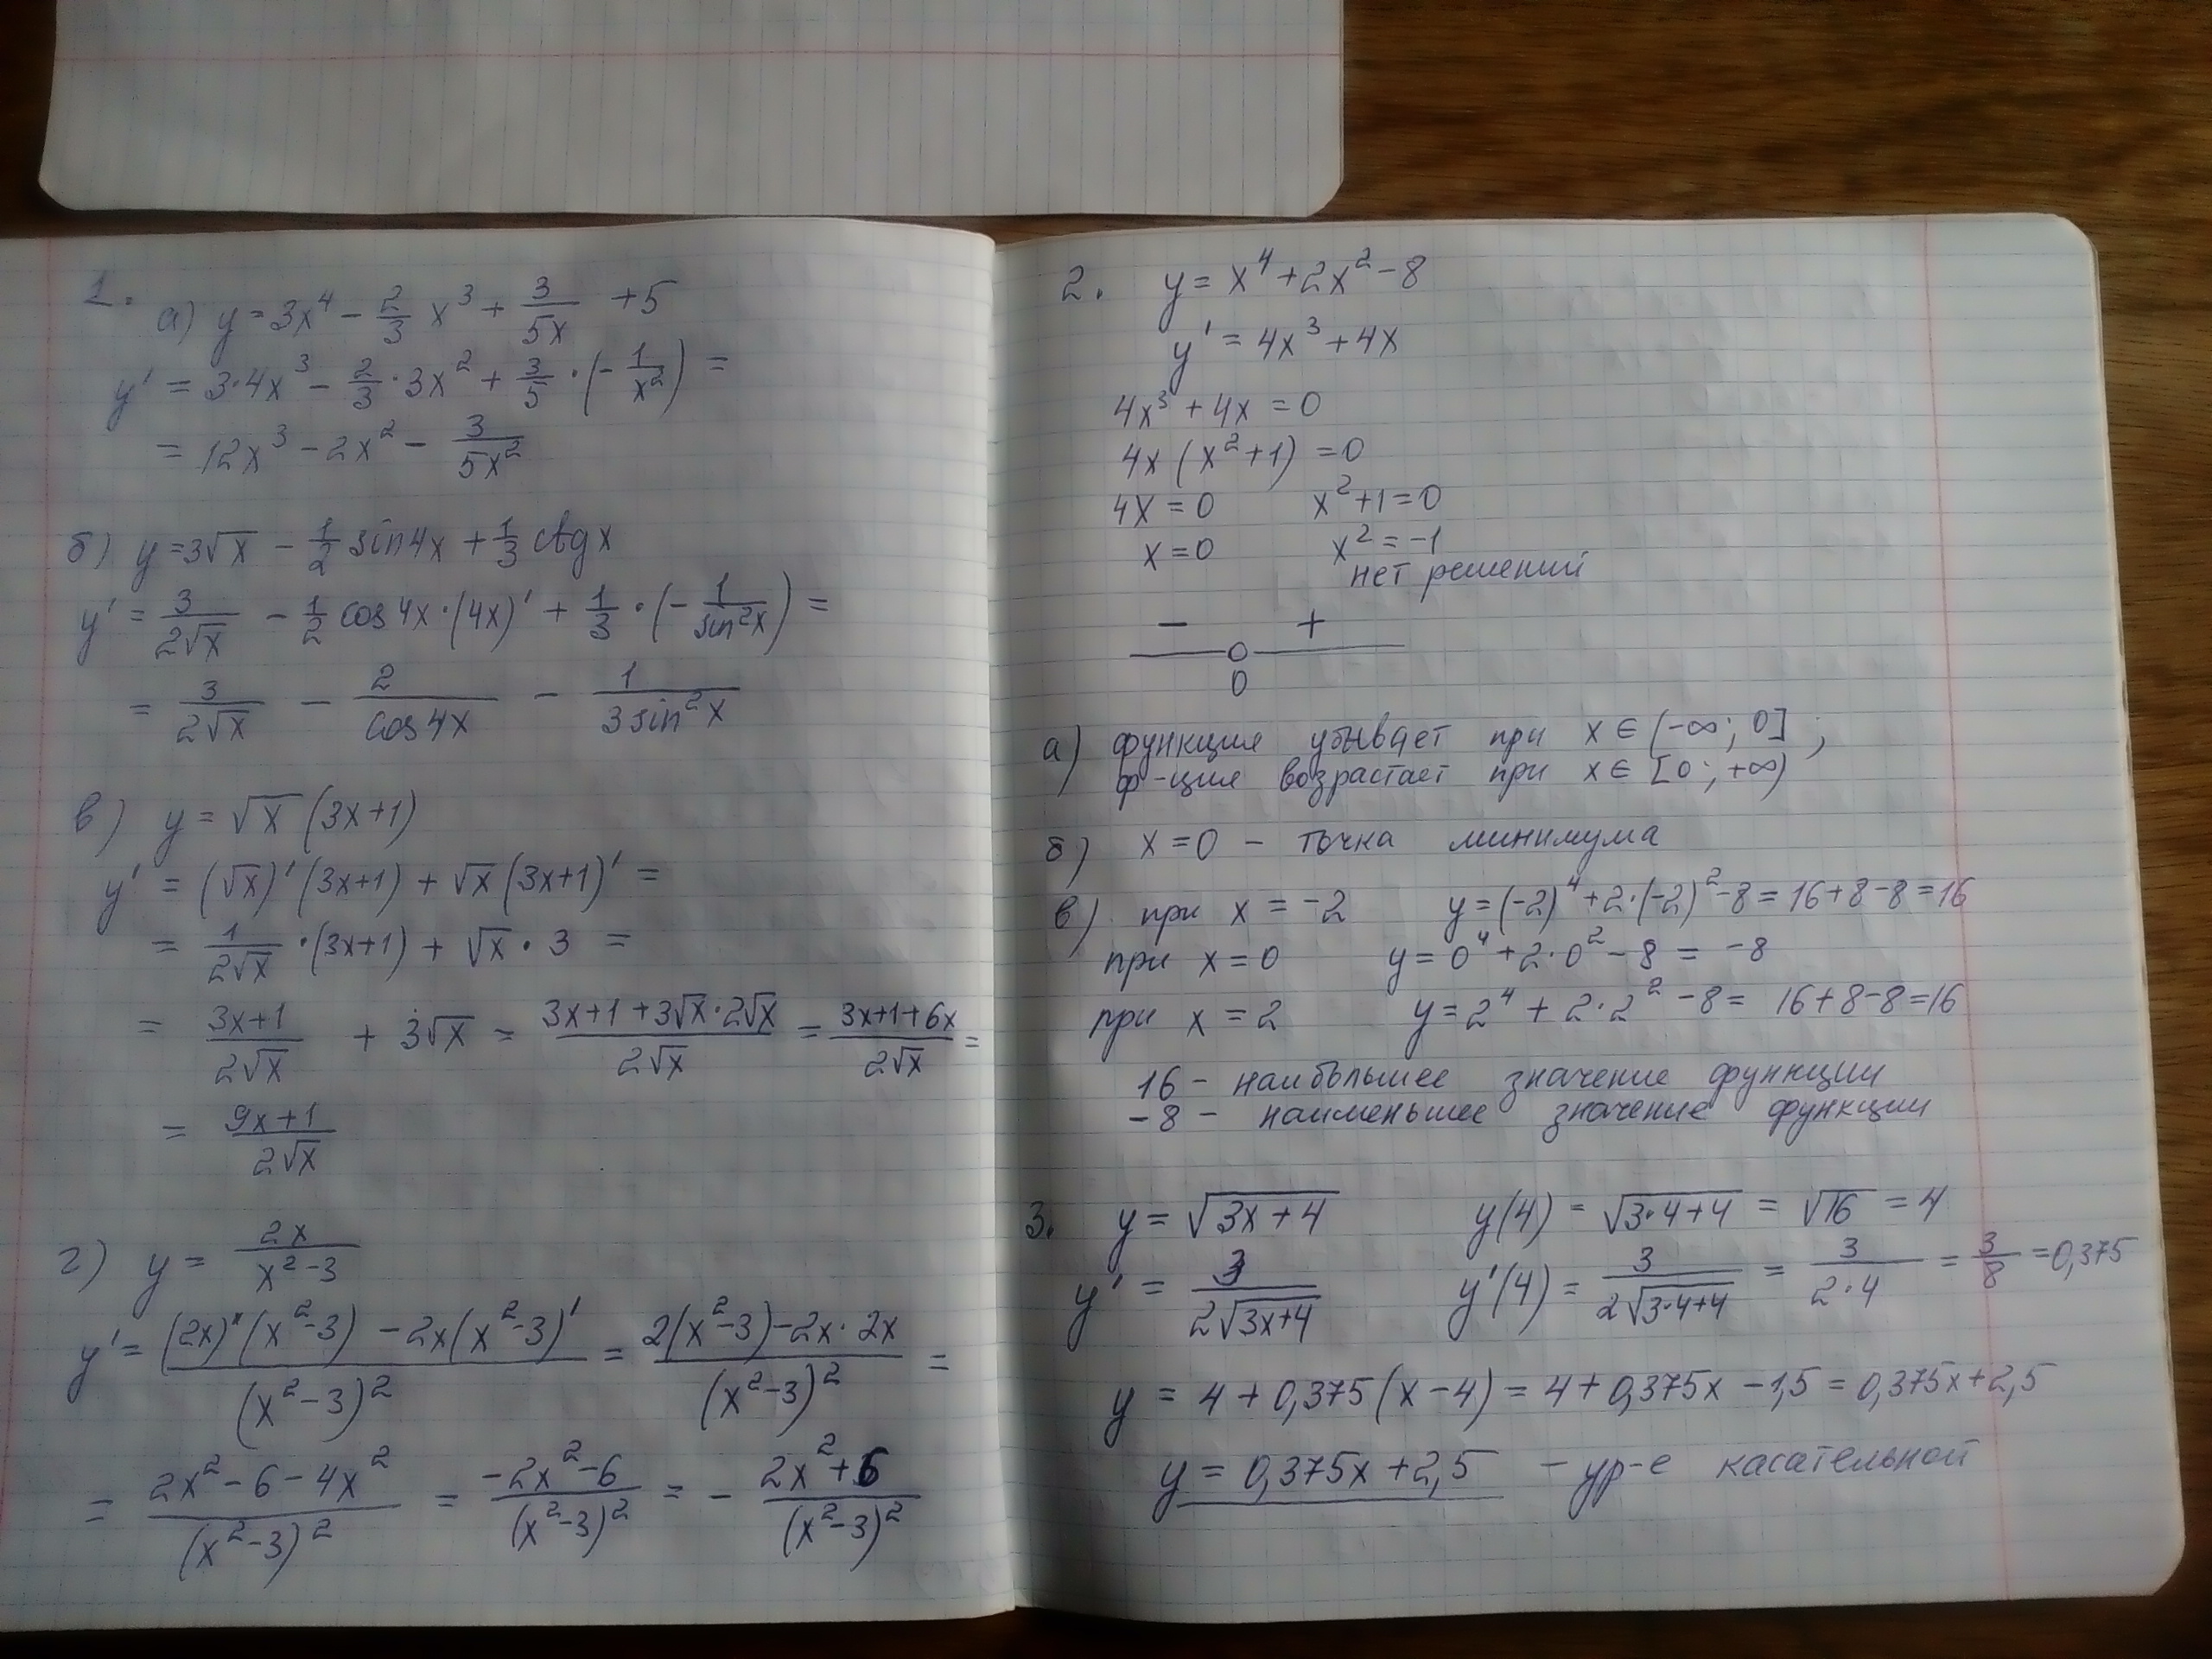 1.
а) y = 3x⁴ - 2/3 x³ + 3/(5x) + 5
y' = 3·4x³ - 2/3·3x² + 3/5·(-1/x²) =
= 12x³ - 2x² - 3/(5x²)
б) y = 3√x - 1/2 sin4x + 1/3 ctgx
y' = 3/(2√x) - 1/2 cos4x·(4x)' + 1/3·(-1/(sin²x)) =
= 3/(2√x) - 2/(cos4x) - 1/(3sin²x)
в) y = √x (3x+1)
y' = (√x)'(3x+1) + √x(3x+1)' =
= 1/(2√x)·(3x+1) + √x·3 =
= (3x+1)/(2√x) + 3√x = (3x+1+3√x·2√x)/(2√x) = (3x+1+6x)/(2√x) =
= (9x+1)/(2√x)
г) y = 2x/(x²-3)
y' = ((2x)'(x²-3) - 2x(x²-3)')/(x²-3)² = (2(x²-3)-2x·2x)/(x²-3)² =
= (2x²-6-4x²)/(x²-3)² = (-2x²-6)/(x²-3)² = - (2x²+6)/(x²-3)²
2. y = x⁴+2x²-8
y' = 4x³+4x
4x³+4x=0
4x(x²+1)=0
4x=0 x²+1=0
x=0 x²=-1
нет решений
- +
0
а) функция убывает при x∈(-∞; 0];
ф-ция возрастает при x∈[0; +∞)
б) x=0 - точка минимума
в) при x=-2 y=(-2)⁴+2·(-2)²-8=16+8-8=16
при x=0 y=0⁴+2·0²-8= -8
при x=2 y=2⁴+2·2²-8= 16+8-8=16
16 - наибольшее значение функции
-8 - наименьшее значение функции
3. y=√(3x+4) y(4)=√(3·4+4)=√16=4
y' = 3/(2√(3x+4)) y'(4)=3/(2√(3·4+4)) = 3/(2·4) = 3/8 =0,375
y = 4+0,375(x-4)=4+0,375x-1,5=0,375x+2,5
y=0,375x+2,5 - ур-е касательной